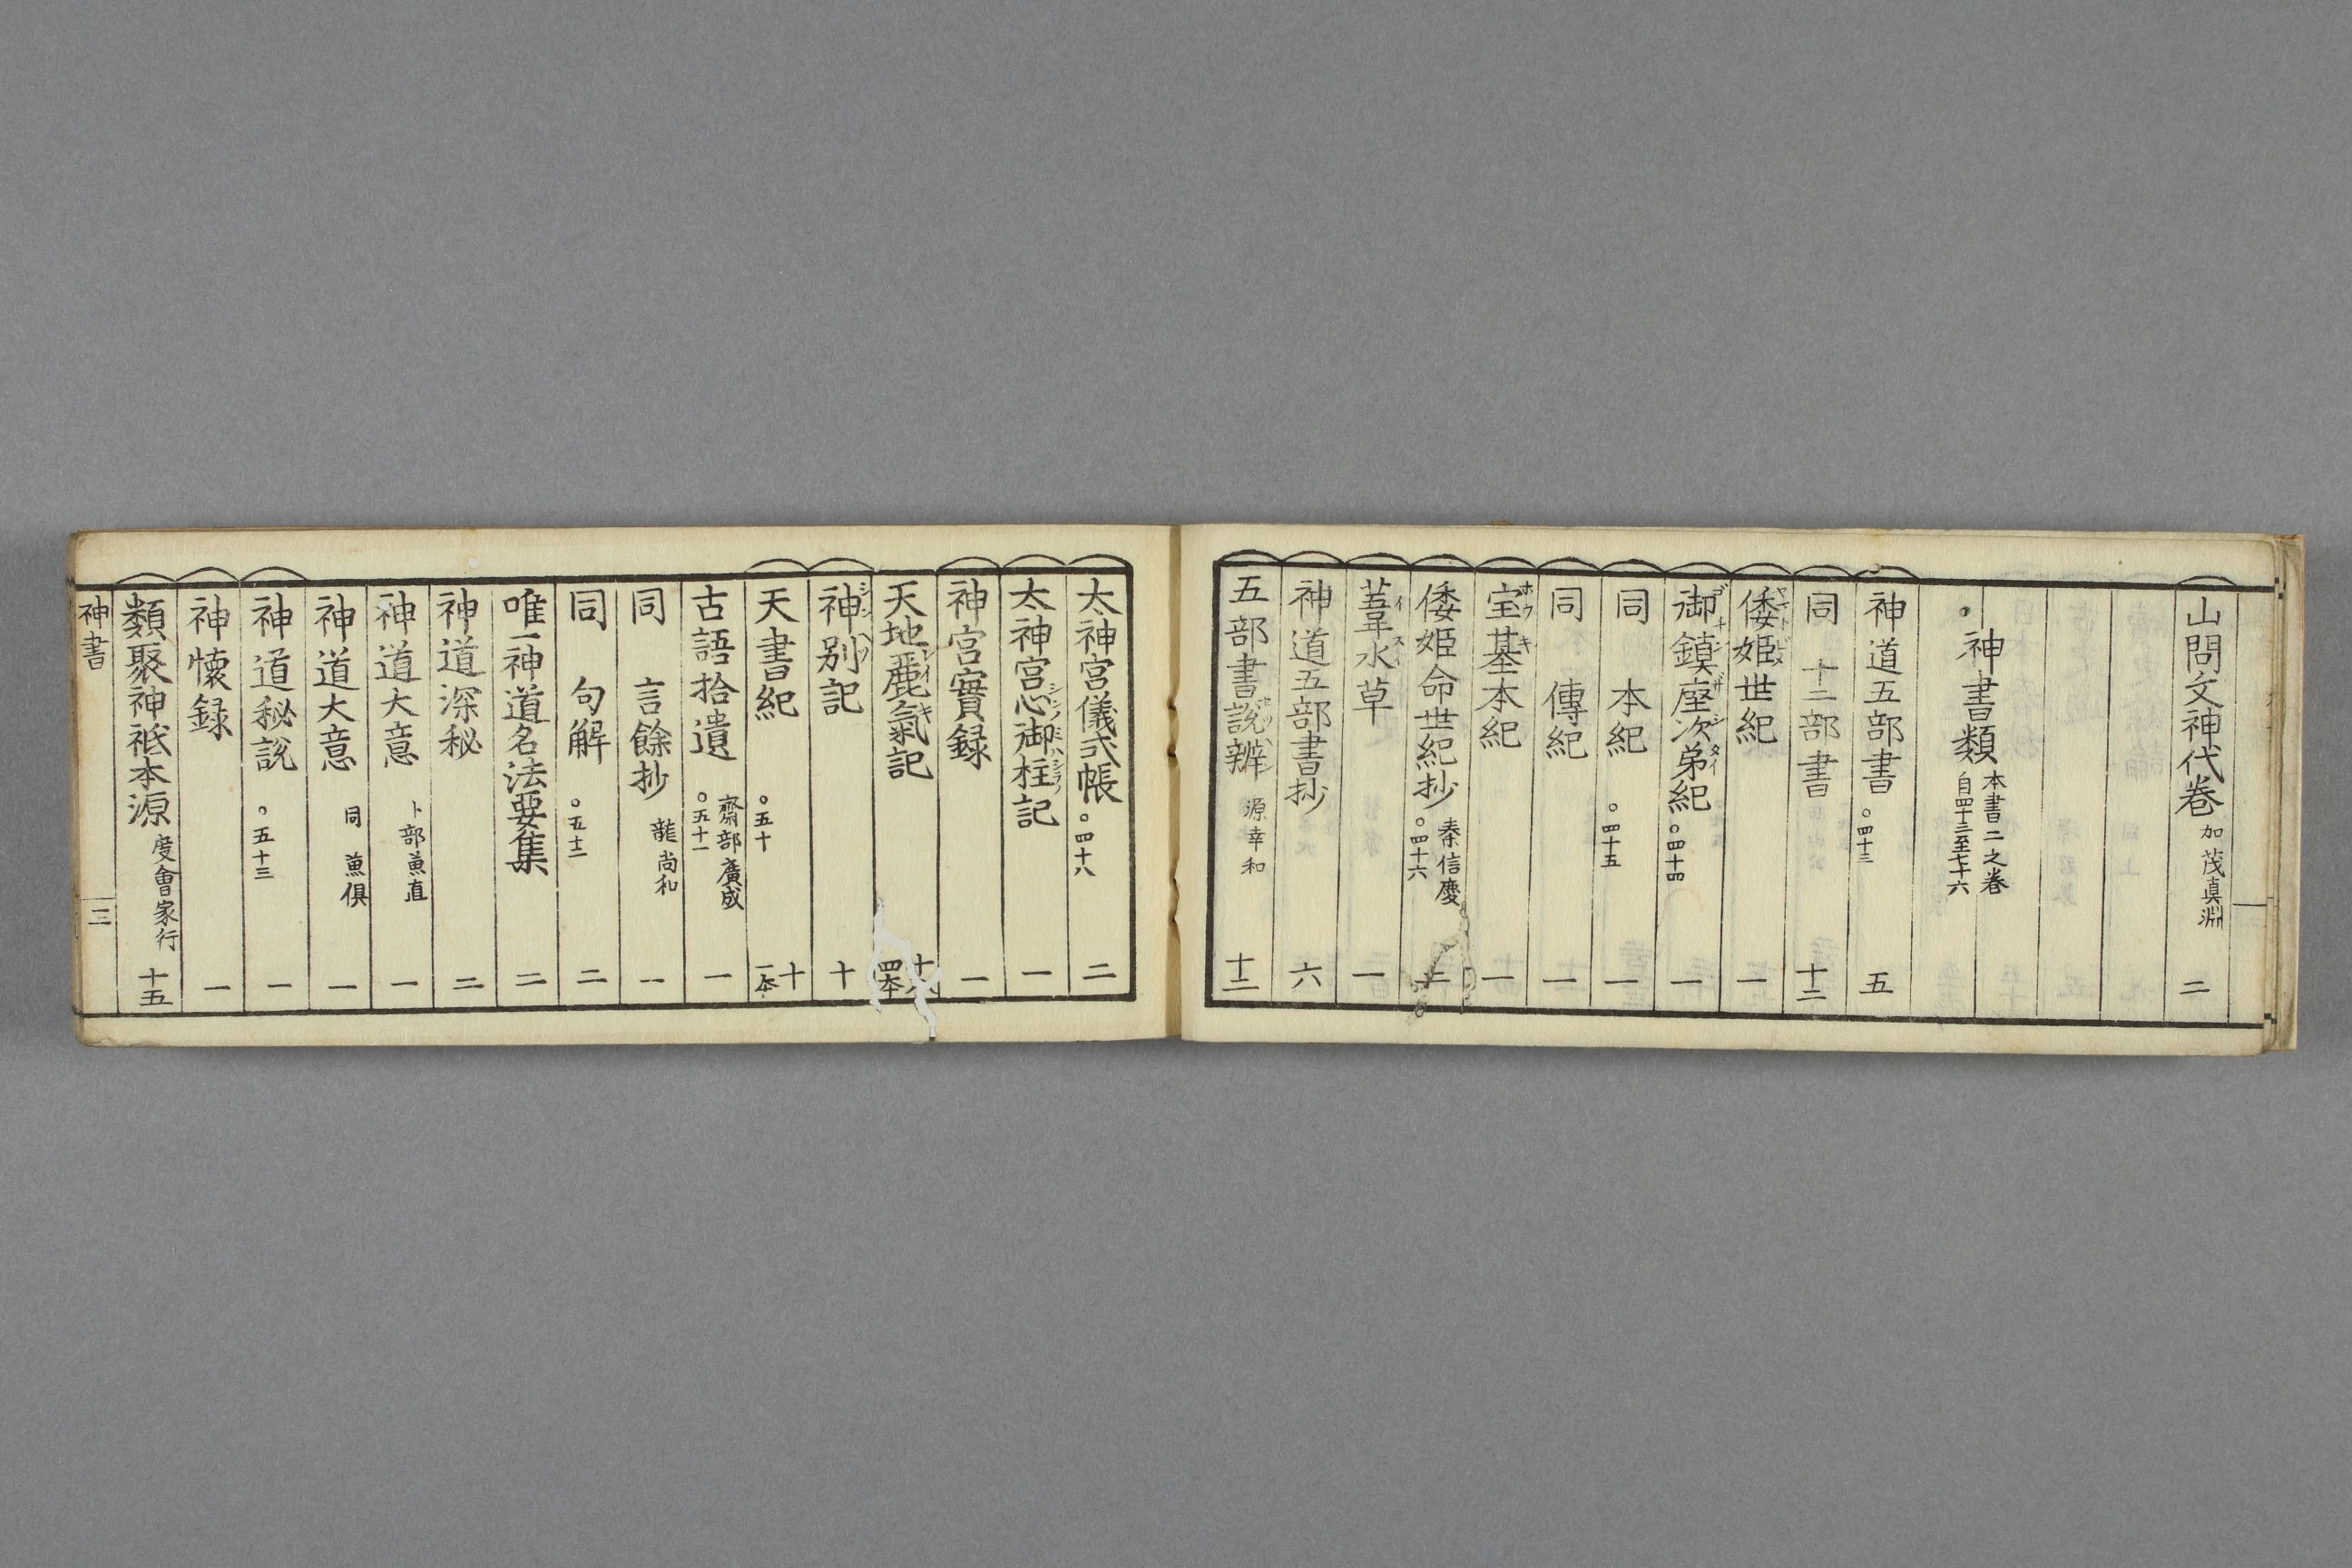 山問文神代巻 加茂真淵 二
神書類 本書二之巻
自四十三至七十六
神道五部書 ○四十三 五
同 十二部書 十二
倭姫世紀 一
御鎮座次第紀 ○四十四 一
同 本紀 ○四十五 一
同 傳紀 一
宝基本紀 一
倭姫命世紀抄 秦信慶 ○四十六
葦水草 一
神道五部書抄 六
五部書説辨 源幸和 十二
太神宮儀式帳 ○四十八 二
太神宮心御柱記 一
神宮實録 一
天地麗氣記 四本
神別記 十
天書紀 ○五十 十 一本
古語拾遺 齋部廣成 ○五十一 一
同 言餘抄 龍尚和 一
同 句解 ○五十二 二
唯一神道名法要集 二
神道深秘 二
神道大意 卜部兼直 一
神道大意 同 兼倶 一
神道秘説 ○五十三 一
神懐録 一
類聚神祇本源 度會家行 十五
神書 三